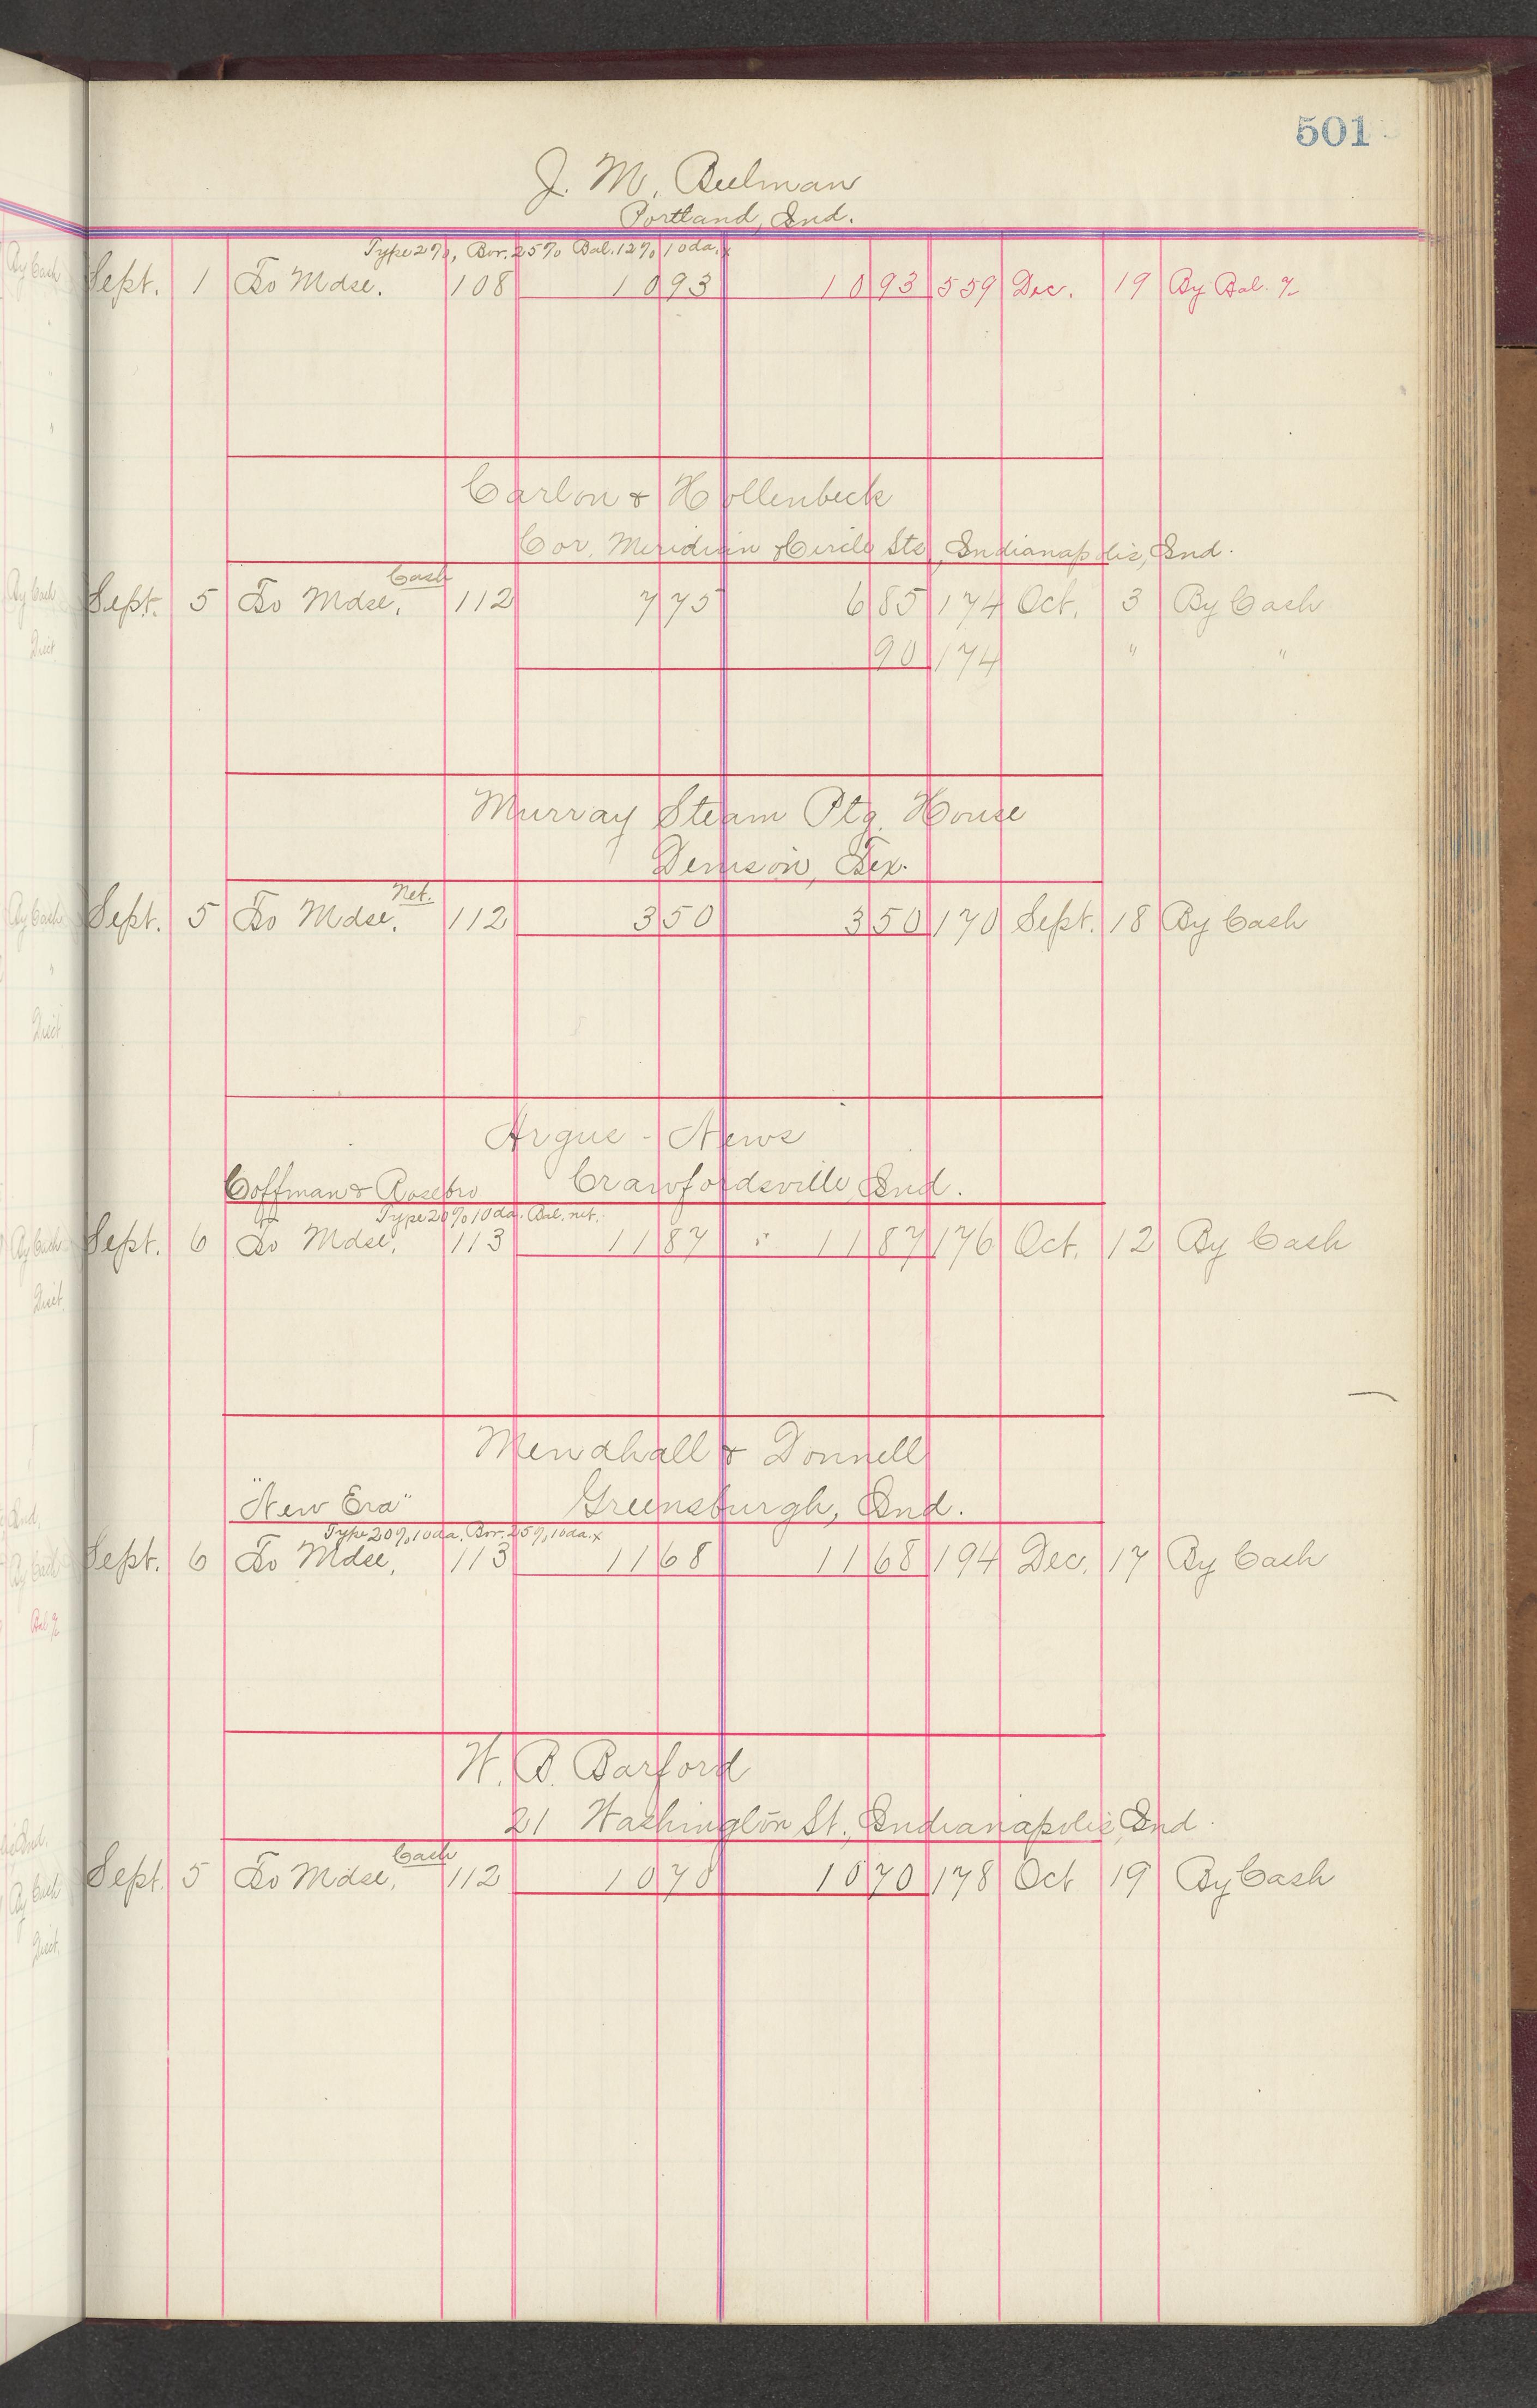 501
J. M. Beelman
Portland, Ind.
Type 2%, Bor. 25% Bal. 12% 10 da. x
Sept. 1 To Mdse. 108 10 93 10 93 559 Dec. 19 By Bal. %
Carlon & Hollenbeck
Cor. Meridian & Circle Sts, Indianapolis, Ind.
Cash
Sept. 5 To Mdse. 112 7 75 6 85 174 Oct. 3 By Cash
90 174 " "
Murray Steam Ptg. House
Denison, Tex.
Net.
Sept. 5 To Mdse. 112 3 50 3 50 170 Sept. 18 By Cash
Argus - News
Coffman & Rosebro Crawfordsville, Ind.
Type 20% 10 da. Bal. net.
Sept. 6 To Mdse. 113 11 87 11 87 176 Oct. 12 By Cash
Mendhall & Donnell
"New Era" Greensburgh, Ind.
Type 20% 10 da. Bor. 25% 10 da. x
Sept. 6 To Mdse. 113 11 68 11 68 194 Dec. 17 By Cash
H. B. Barford
21 Washington St., Indianapolis Ind.
Cash
Sept. 5 To Mdse. 112 10 70 10 70 178 Oct 19 By Cash